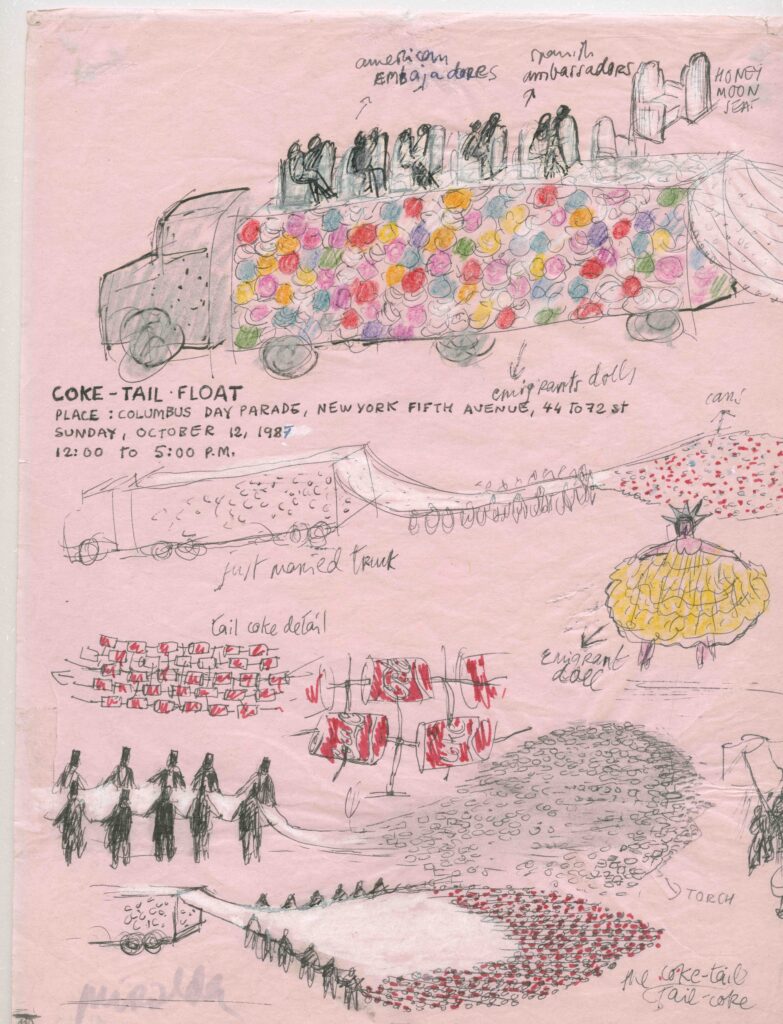 american
EMBAJADORES
spanish
ambassadors
HONEY
MOON
SEAT
emigrants dolls
COKE-TAIL·FLOAT
PLACE: COLUMBUS DAY PARADE, NEW YORK FIFTH AVENUE, 44 TO 72 st
SUNDAY, OCTOBER 12, 1987
12:00 TO 5:00 P.M.
cans
just married truck
tail coke detail
Emigrant
doll
TORCH
the coke-tail
tail-coke
miralda